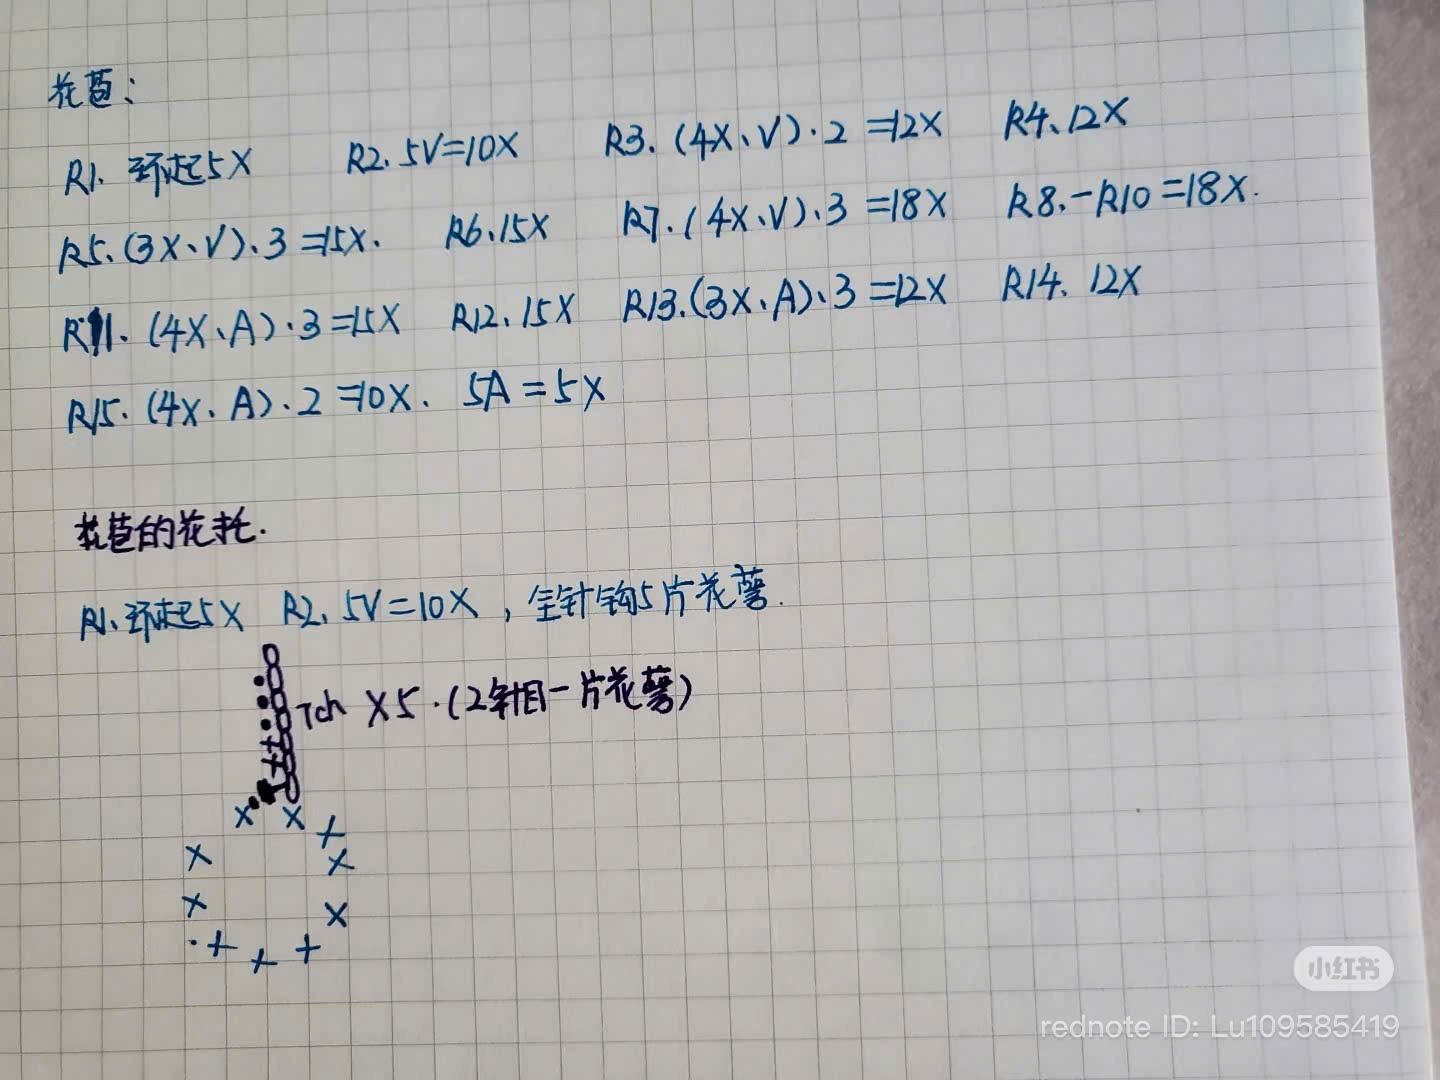 花苞：
R1. 环起5X R2. 5V=10X R3. (4X、V)·2 =12X R4、12X
R5. (3X、V)、3 =15X. R6、15X R7. (4X、V)、3 =18X R8.-R10 =18X.
R11. (4X、A)·3 =15X R12、15X R13.(3X、A)、3 =12X R14、12X
R15. (4X、A)·2 =10X. 5A = 5X
花苞的花托.
R1、环起5X R2. 5V=10X , 钩5片花萼.
7ch X5 .(2针目一片花萼)
小红书
rednote ID: Lu109585419